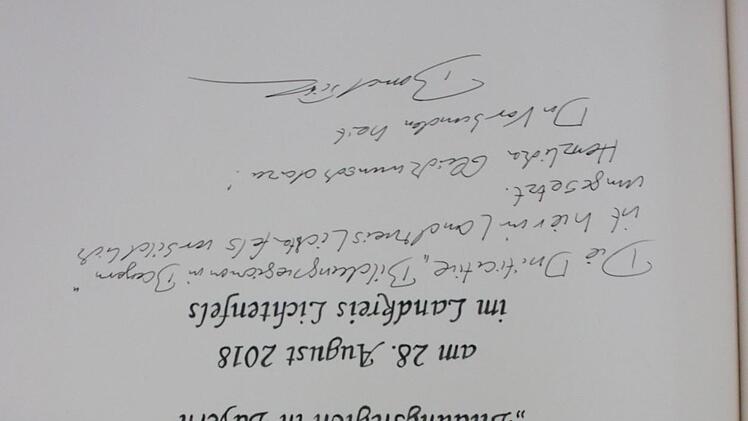 „Bildungsregion in Bayern
am 28. August 2018
im Landkreis Lichtenfels
Die Initiative „Bildungsregion in Bayern"
ist hier im Landkreis Lichtenfels vorbildlich
umgesetzt.
Herzlichen Glückwunsch dazu!
Verbundenheit